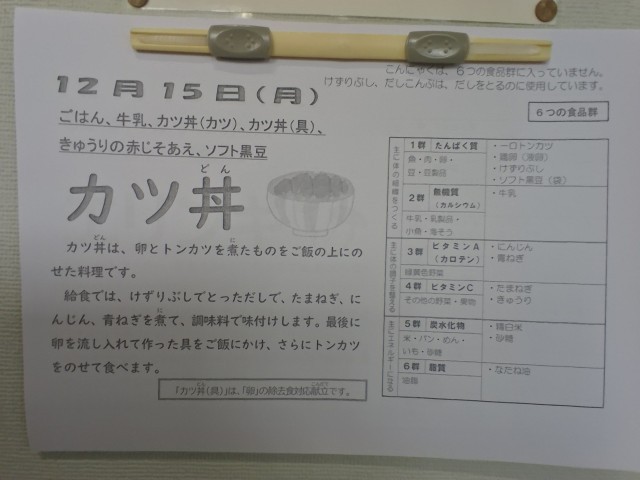 12月15日(月)
ごはん、牛乳、カツ丼(カツ)、カツ丼(具)、
きゅうりの赤じそあえ、ソフト黒豆
どん
カツ丼
カツ丼は、卵とトンカツを煮たものをご飯の上にの
せた料理です。
給食では、けずりぶしでとっただしで、たまねぎ、に
んじん、青ねぎを煮て、調味料で味付けします。最後に
卵を流し入れて作った具をご飯にかけ、さらにトンカツ
をのせて食べます。
「カツ丼(具)」は、「卵」の除去食対応献立です。
こんにゃくは、6つの食品群に入っていません。
けずりぶし、だしこんぶは、だしをとるのに使用しています。
6つの食品群
主に体の組織をつくる
1群 たんぱく質
魚・肉・卵・
豆・豆製品
・一口トンカツ
・鶏卵(液卵)
・けずりぶし
・ソフト黒豆(袋)
2群 無機質
(カルシウム)
牛乳・乳製品・
小魚・海そう
・牛乳
主に体の調子を整える
3群 ビタミンA
(カロテン)
緑黄色野菜
・にんじん
・青ねぎ
4群 ビタミンC
その他の野菜・果物
・たまねぎ
・きゅうり
主にエネルギーになる
5群 炭水化物
米・パン・めん・
いも・砂糖
・精白米
・砂糖
6群 脂質
油脂
・なたね油